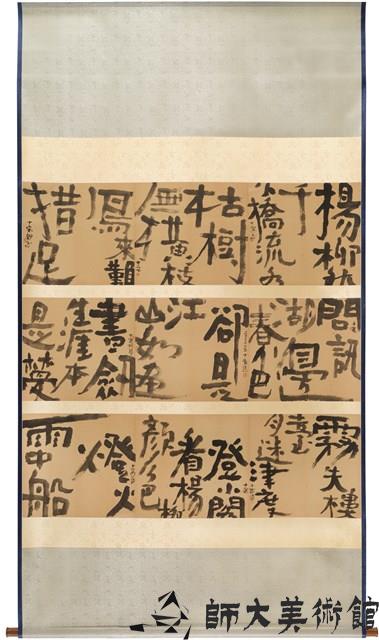 楊柳
千
橋流水
枯樹
無橫枝
寫來難
措足
問訊
湖邊
春色
卻是
江
山如
書劍
生涯本
是夢
霧失樓
臺
月迷津度
登閣
看楊柳
顏色
燈火
船
師大美術館